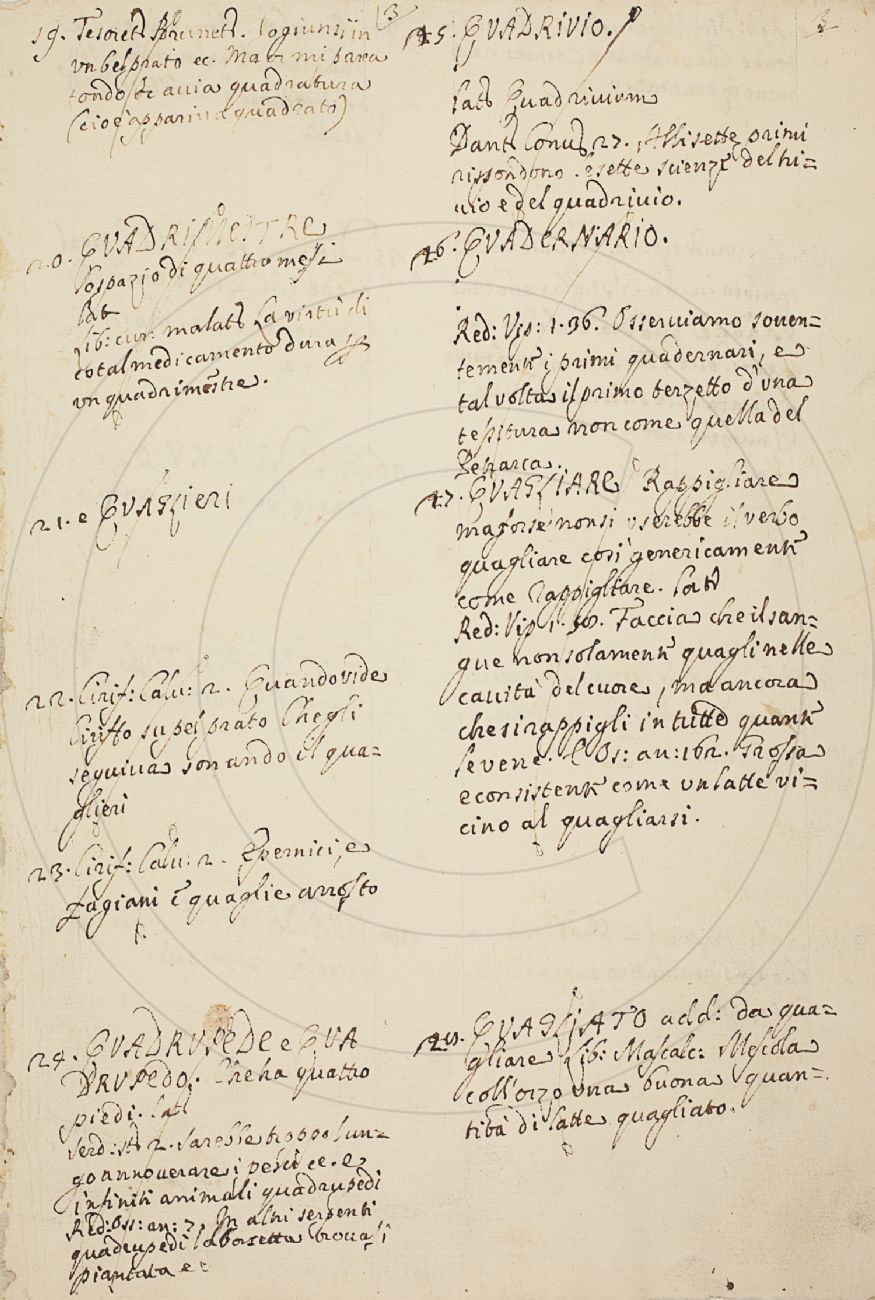 19. Tesoret: Brunet: Io giunsi in
un bel prato ec. Ma e' mi parea
tondo che avia quadratura
(cioè appariva quadrato)
20. QUADRIMESTRE
Lo spazio di quattro mesi
Lat
Lib: cur. malat: La virtù di
cotal medicamento dura
un quadrimestre.
21. e QUAGLIERI
22. Cirif: Calv: 2. Quando vide
Ciriffo su pel prato Ch'egli
seguiva sonando il qua=
glieri
23. Cirif: Calv: 2. E pernici, e
fagiani e quaglie arrosto
24. QUADRUPEDE e QUA
DRUPEDO. Che ha quattro
piedi. Lat
Serd: st: 2. Sarebbe troppo lun=
go annoverare i pesci ec. e
infiniti animali quadrupedi
Red: Oss: an: 7. In altri serpenti
quadrupedi la borsetta trovasi
piantata e
3
45. QUADRIVIO.
Lat: Quadrivium
Dant: Conv: 27. Alli sette primi
rispondono le sette scienze del tri=
vio e del quadrivio.
46. QUADERNARIO.
Red: Vip: 1. 36. Osserviamo soven=
temente i primi quadernari, e
talvolta il primo terzetto d'una
tessitura non come quella del
Petrarca.
47. QUAGLIARE Rappigliare
ma forse non si userebbe il verbo
quagliare così genericamente
come Rappigliare. Lat
Red: Vip 1. Faccia che il san=
gue non solamente quagli nelle
cavità del cuore, ma ancora
che si rappigli in tutte quante
le vene. E Os: an: 162. Grossa
e consistente come un latte vi=
cino al quagliarsi.
QUAGLIATO add: da qua=
gliare Lib: Mascalc: Mescola
coll'orzo una buona quan=
tità di latte quagliato.